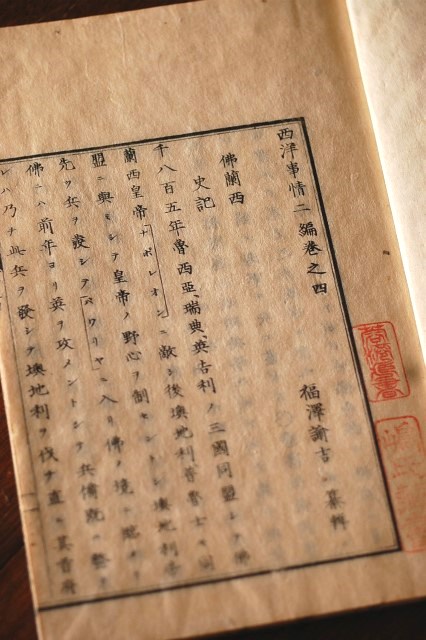 西洋事情二編巻之四
福澤諭吉 纂輯
佛蘭西
史記
千八百五年魯西亞、瑞典、英吉利ノ三國同盟シテ佛
蘭西皇帝ナポレオンニ敵シ後墺地利普魯士モ同
盟ニ與モシテ皇帝ノ野心ヲ制セントシ墺地利
先ツ兵ヲ發シテバワリヤニ入リ佛ノ境ニ
佛ニハ前年ヨリ英ヲ攻メントシテ兵備既ニ整
レハ乃チ其兵ヲ發シテ墺地利ヲ伐チ直ニ其首府